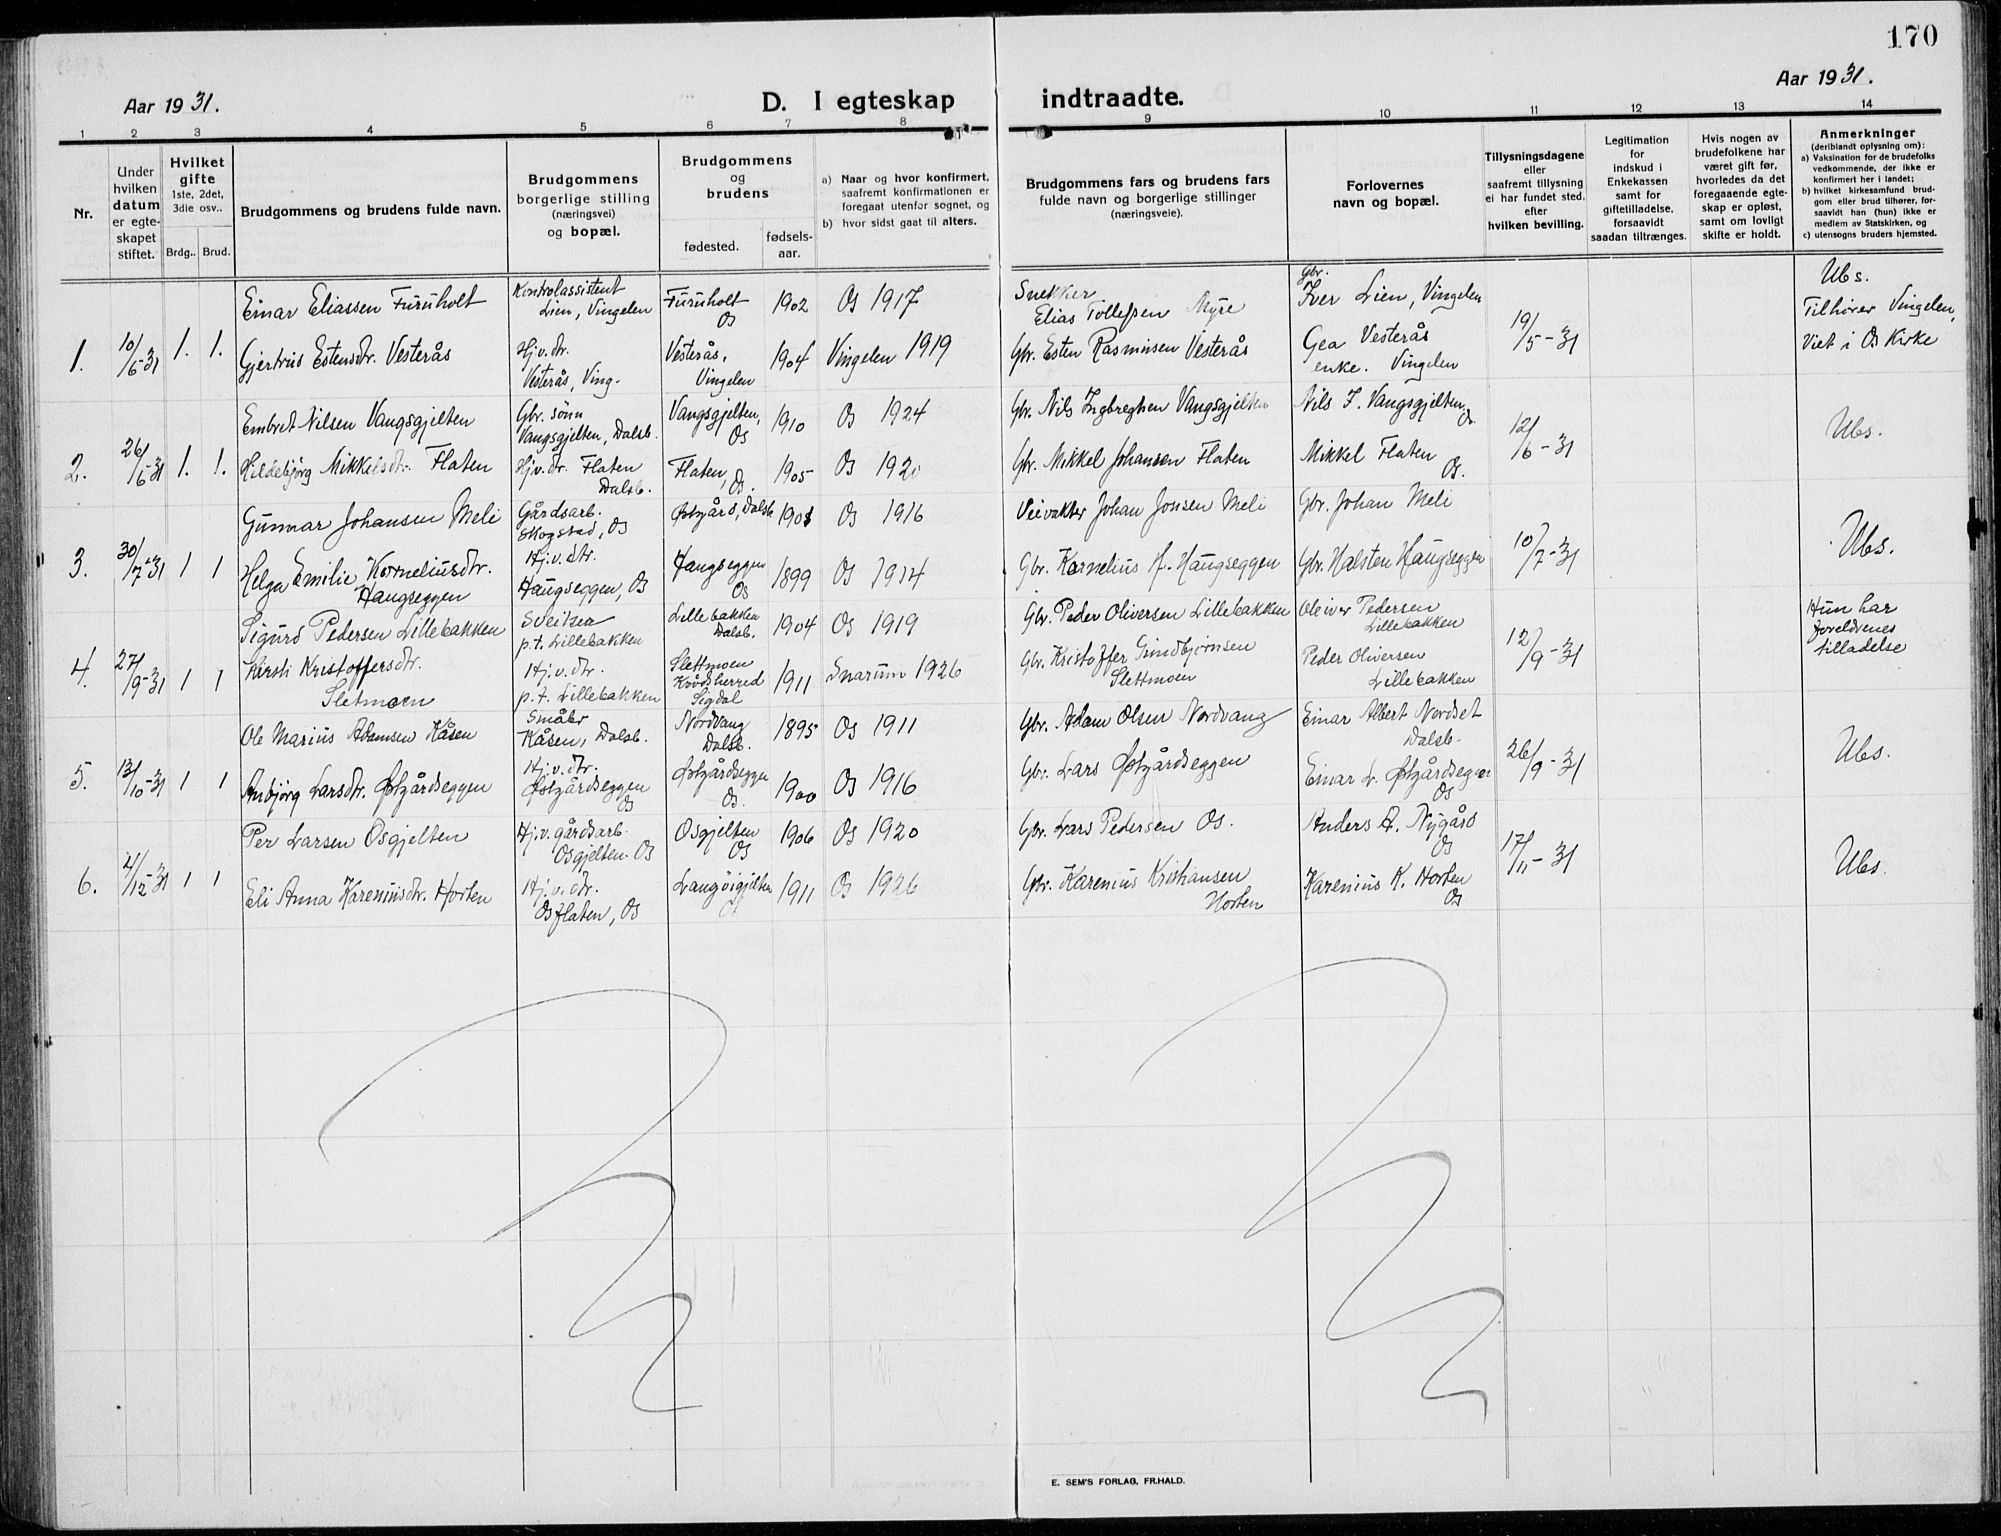 170
Aar 1931.
D. I egteskap indtraadte.
Aar 1931.
1 2 3 4 5 6 7 8 9 10 11 12 13 14
Nr.
Under hvilken datum er egteskapet stiftet.
Hvilket gifte
1ste, 2det, 3die osv..
Brdg.. Brud.
Brudgommens og brudens fulde navn.
Brudgommens borgerlige stilling (næringsvei) og bopæl.
Brudgommens og brudens
fødested.
fødselsaar.
a) Naar og hvor konfirmert, saafremt konfirmationen er foregaat utenfor sognet, og
b) hvor sidst gaat til alters.
Brudgommens fars og brudens fars fulde navn og borgerlige stillinger (næringsveie).
Forlovernes navn og bopæl.
Tillysningsdagene eller saafremt tillysning ei har fundet sted, efter hvilken bevilling.
Legitimation for indskud i Enkekassen samt for giftetilladelse, forsaavidt saadan tiltrænges.
Hvis nogen av brudefolkene har været gift før, hvorledes da det foregaaende egteskap er opløst, samt om lovligt skifte er holdt.
Anmerkninger
(deriblandt oplysning om):
a) Vaksination for de brudefolks vedkommende, der ikke er konfirmert her i landet;
b) hvilket kirkesamfund brudgom eller brud tilhører, forsaavidt han (hun) ikke er medlem av Statskirken, og
c) utensogns bruders hjemsted.
1. 10/6-31 1. 1.
Einar Eliassen Furuholt
Kontrolassistent Lien, Vingelen
Furuholt Os
1902
Os 1917
Snekker Elias Tollefsen Myre
Gbr. Iver Lien, Vingelen
19/5-31
Ubs.
Tilhører Vingelen,
Viet i Os Kirke
Gjertrud Estensdtr. Vesterås
Hj.v.dtr. Vesterås, Ving.
Vesterås, Vingelen
1904
Vingelen 1919
Gbr. Esten Rasmusen Vesterås
Gea Vesterås enke. Vingelen
2. 26/6-31 1. 1.
Embret Nilsen Vangsgjelten
Gbr. sønn Vangsgjelten, Dalsb.
Vangsgjelten, Os
1910
Os 1924
Gbr. Nils Ingbregtsen Vangsgjelten
Nils I. Vangsgjelten, Os
12/6-31
Ubs.
Hildebjørg Mikkelsdtr. Flaten
Hj.v.dtr. Flaten Dalsb.
Flaten, Os.
1905
Os 1920
Gbr. Mikkel Johansen Flaten
Mikkel Flaten Os.
3. 30/7-31 1 1
Gunnar Johansen Meli
Gårdsarb. Skogstad, Os
Østgård, Dalsb
1901
Os 1916
Veivakter Johan Jonsen Meli
Gbr. Johan Meli
10/7-31
Ubs.
Helga Emilie Korneliusdtr. Haugseggen
Hj.v.dtr. Haugseggen, Os
Haugseggen Os
1899
Os 1914
Gbr. Kornelius H. Haugseggen
Gbr. Halsten Haugseggen
4. 27/9-31 1 1
Sigurd Pedersen Lillebakken
Sveitser p.t. Lillebakken
Lillebakken Dalsb.
1904
Os 1919
Gbr. Peder Oliversen Lillebakken
Oleiver Pedersen Lillebakken
12/9-31
Hun har foreldrenes tilladelse
Kirsti Kristoffersdtr. Sletmoen
Hj.v.dtr. p.t. Lillebakken
Slettmoen Krødsherred Sigdal
1911
Snarum 1926
Gbr. Kristoffer Gundbjørnsen Slettmoen
Peder Oliversen Lillebakken
5. 13/10-31 1 1
Ole Marius Adamsen Kåsen
Småbr Kåsen, Dalsb.
Nordvang Dalsb.
1895
Os 1911
Gbr. Adam Olsen Nordvang
Einar Albert Nordset Dalsb.
26/9-31
Ubs.
Anbjørg Larsdtr. Østgårdseggen
Hj.v.dtr. Østgårdseggen Os
Østgårdseggen Os.
1900
Os 1916
Gbr. Lars Østgårdseggen
Einar L. Østgårdseggen Os
6. 4/12-31 1 1
Per Larsen Osgjelten
Hj.v. gårdsarb. Osgjelten. Os
Osgjelten Os
1906
Os 1920
Gbr. Lars Pedersen Os.
Anders A. Nygård Os
17/11-31
Ubs.
Eli Anna Kareniusdtr. Horten
Hj.v.dtr. Osflaten, Os
Langøigjelten Os
1911
Os 1926
Gbr. Karenius Kristiansen Horten
Karenius K. Horten Os
E. SEM'S FORLAG, FR.HALD.